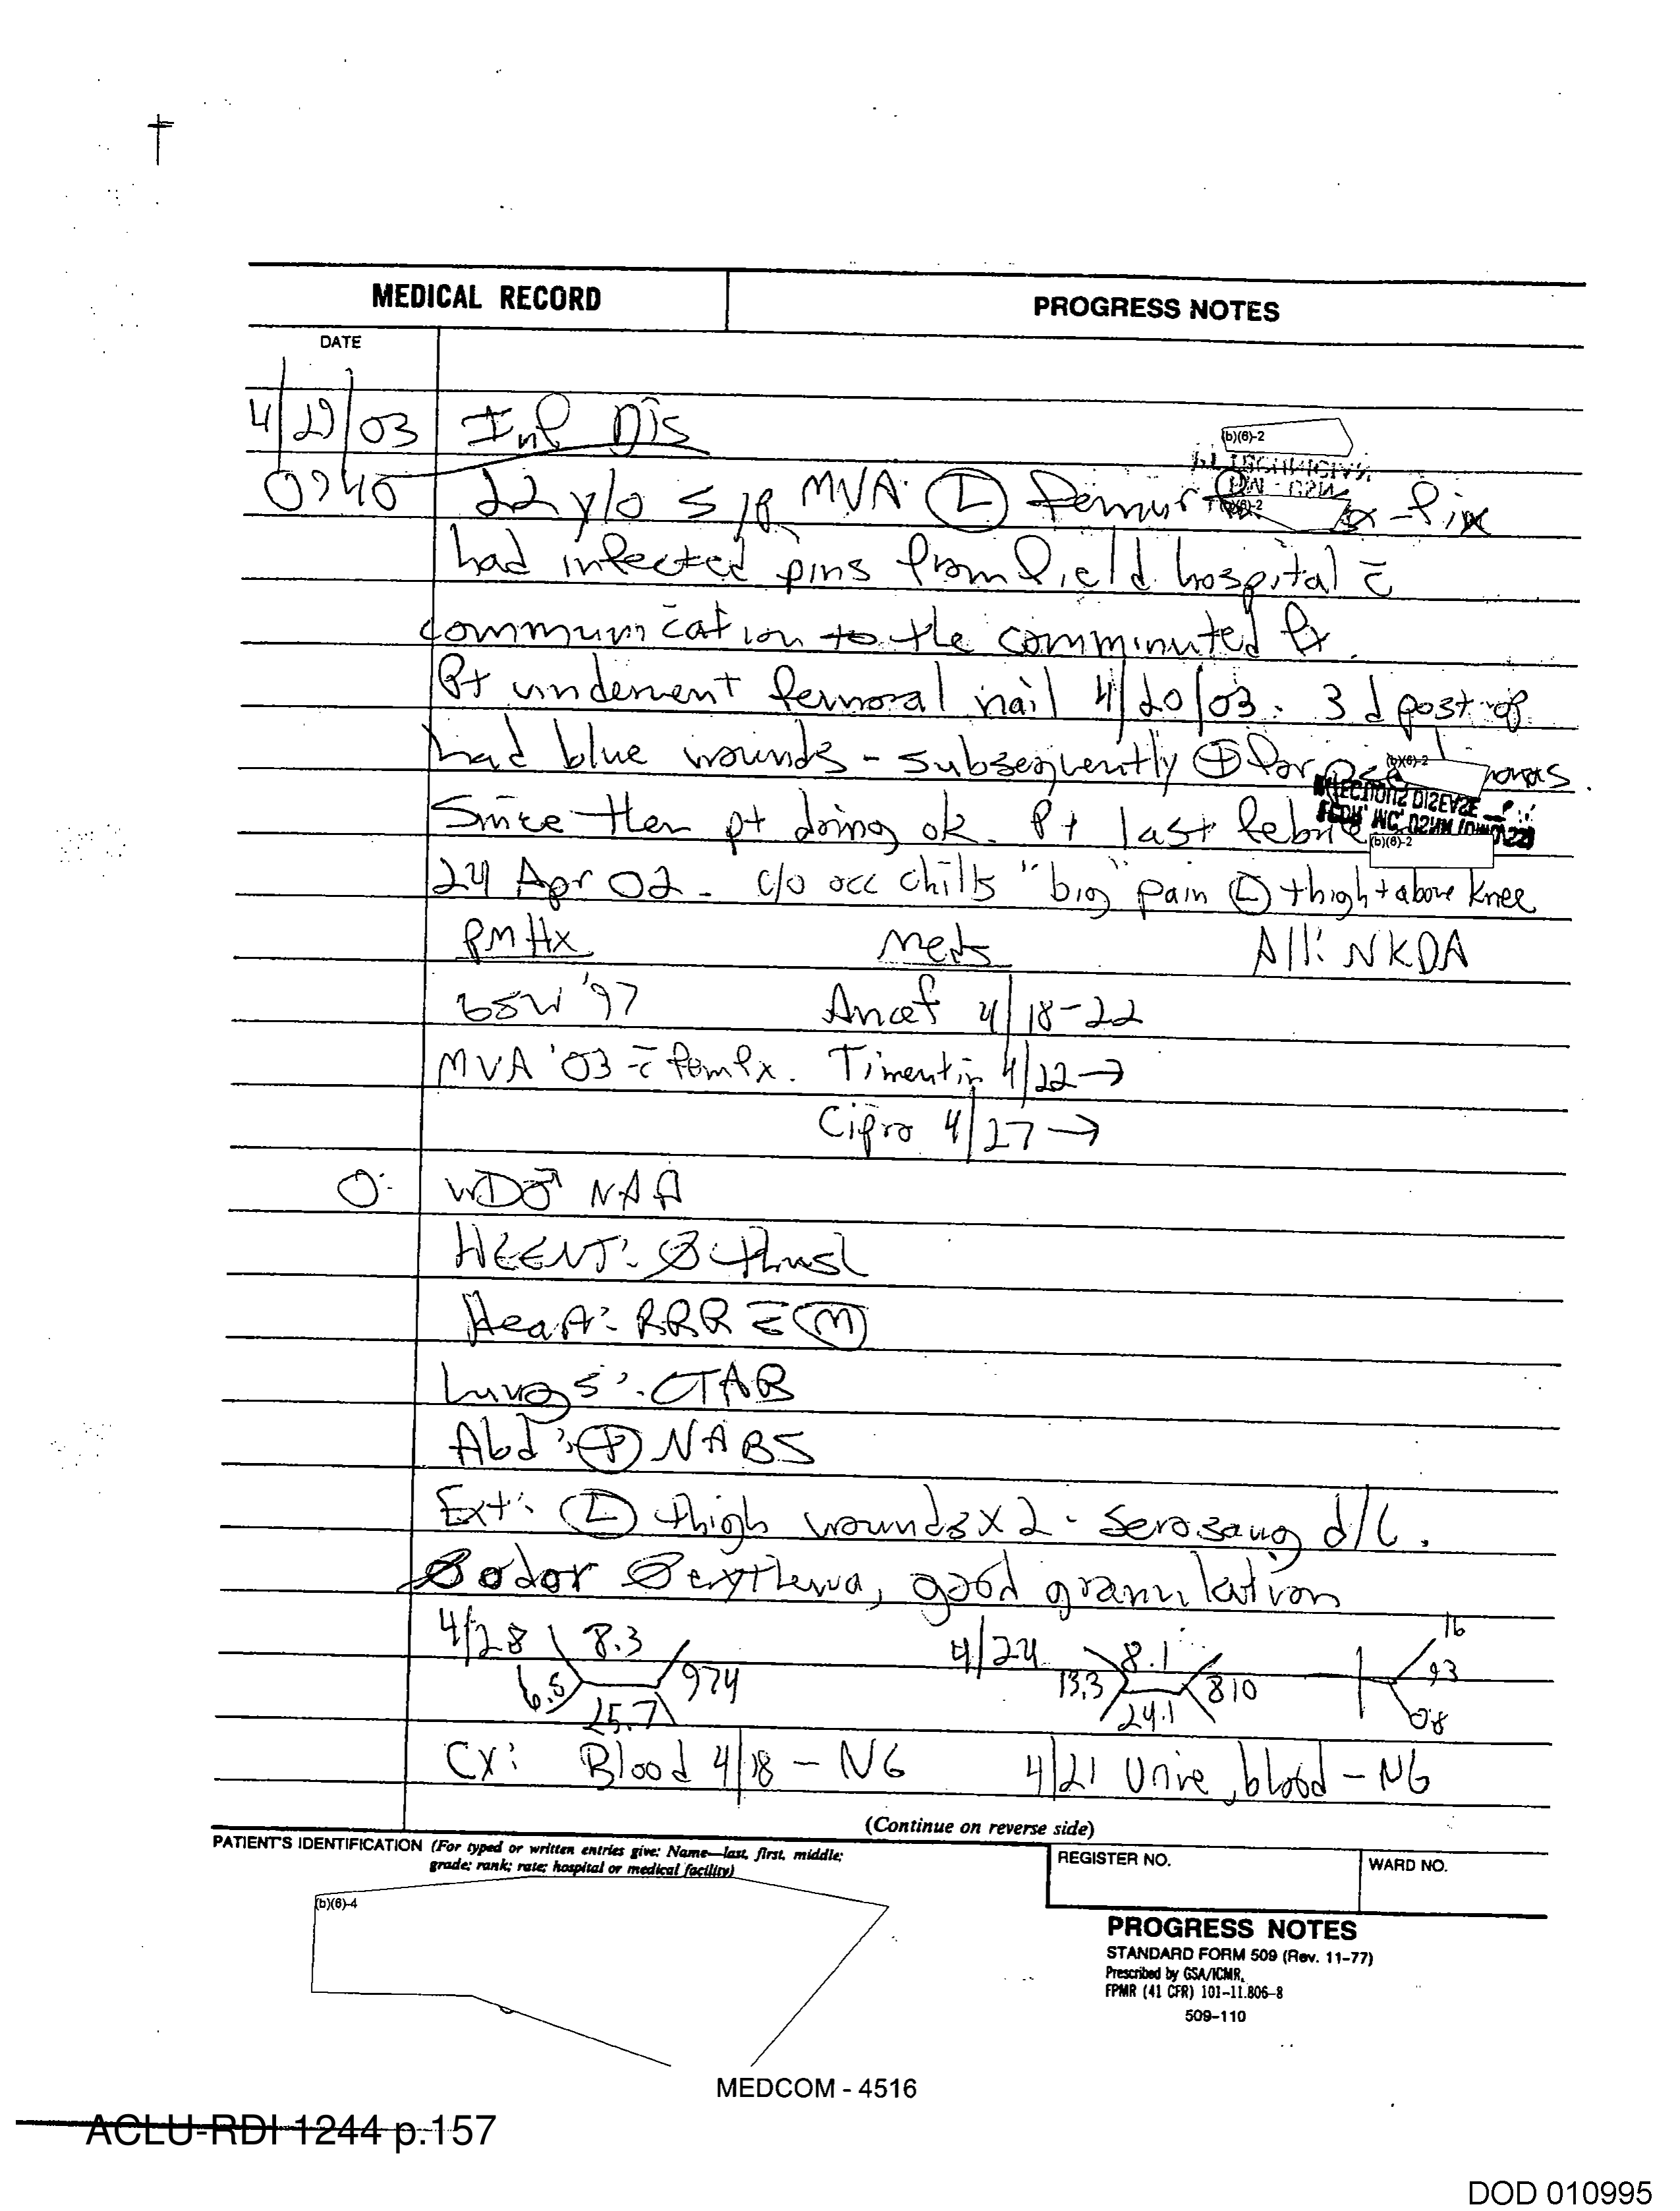 MEDICAL RECORD
PROGRESS NOTES
DATE
4/29/03 Inf Dis
(b)(6)-2
0940 22 y/o s/p MVA (L) femur x-fix
(b)(6)-2
had infected pins from field hospital c̄
communication to the comminuted fx.
Pt underwent femoral nail 4/20/03. 3 d post-op
had blue wounds - subsequently ⊕ for
(b)(6)-2
Since then pt doing ok. Pt last febrile
(b)(6)-2
24 Apr 02. c/o occ chills "big" pain (L) thigh + above knee
PMHx Meds All: NKDA
GSW '97 Ancef 4/18-22
MVA '03 c̄ fem fx. Timentin 4/22→
Cipro 4/27→
O: WD♂ NAD
HEENT: Ø thrush
Heart: RRR (M)
Lungs: CTAB
Abd: ⊕ NABS
Ext: (L) thigh wounds x 2 - serosang d/c.
Ø odor Ø erythema, good granulation
4/28 8.3 4/24 8.1 16
6.5 974 13.3 810 93
25.7 24.1 0.8
Cx: Blood 4/18 - NG 4/21 Urine, blood - NG
(Continue on reverse side)
PATIENT'S IDENTIFICATION (For typed or written entries give: Name—last, first, middle;
grade; rank; rate; hospital or medical facility)
REGISTER NO.
WARD NO.
(b)(6)-4
PROGRESS NOTES
STANDARD FORM 509 (Rev. 11-77)
Prescribed by GSA/ICMR,
FPMR (41 CFR) 101-11.806-8
509-110
MEDCOM - 4516
ACLU-RDI 1244 p.157
DOD 010995